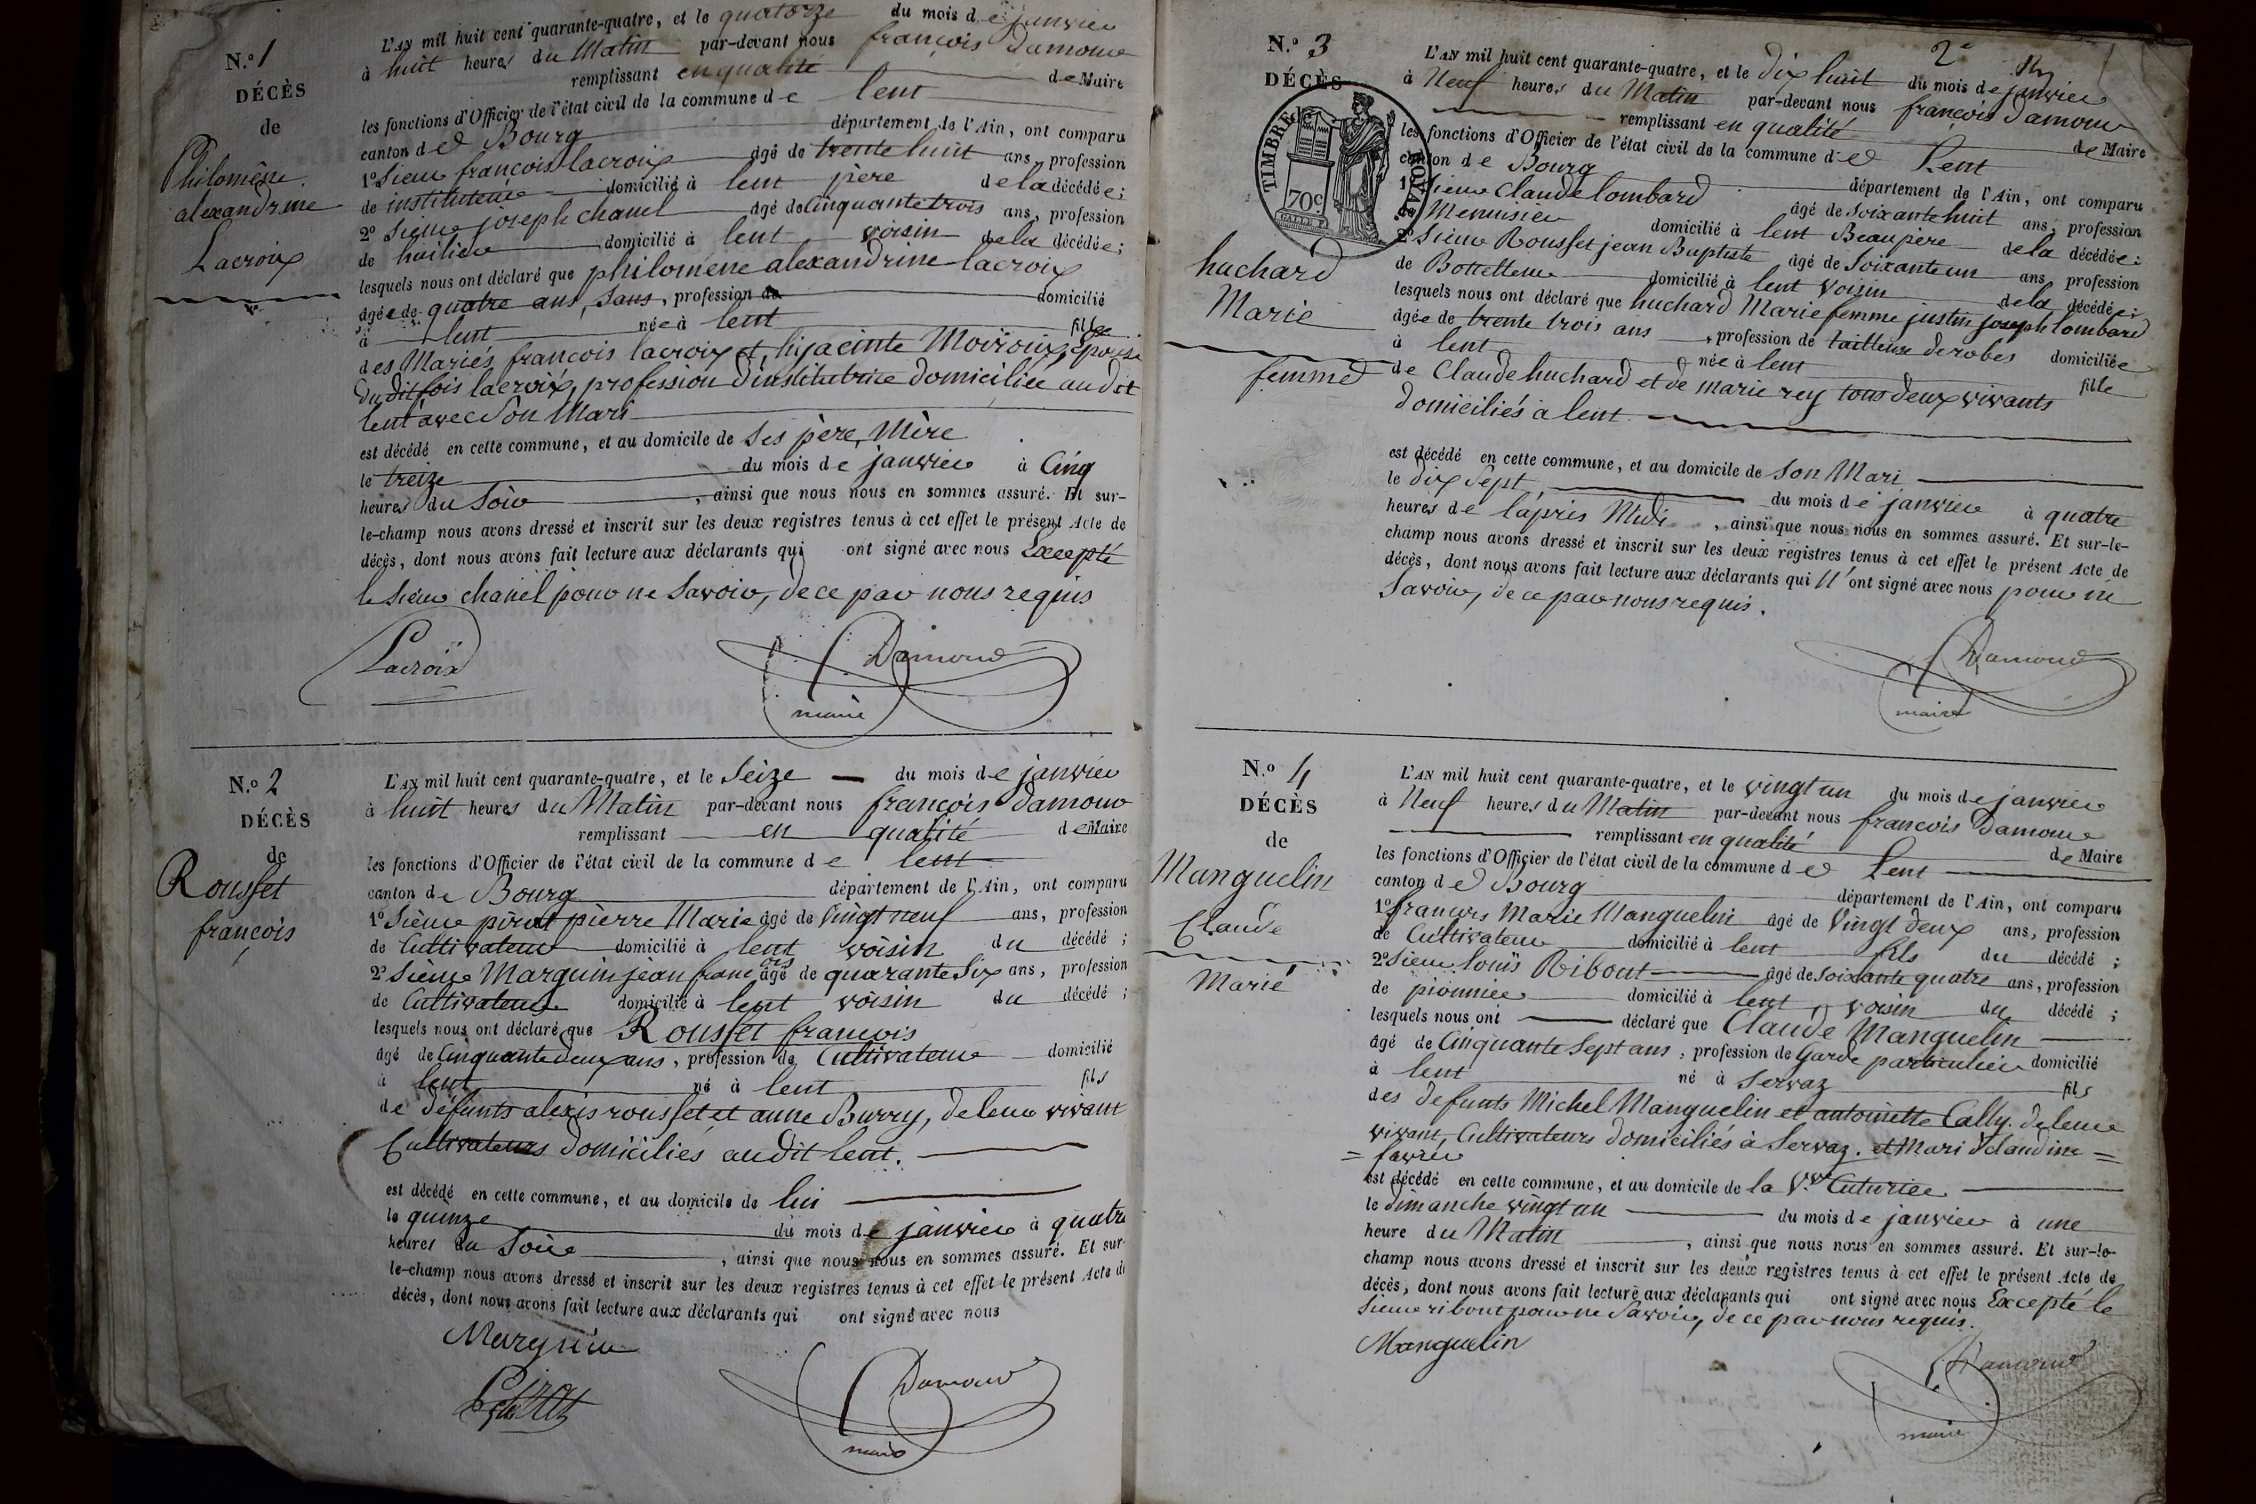 N.° 1
DÉCÈS
de
Philomène
alexandrine
Lacroix
L'AN mil huit cent quarante-quatre, et le quatorze du mois de janvier
à huit heures du Matin par-devant nous françois Damour
remplissant en qualité de Maire
les fonctions d'Officier de l'état civil de la commune de lent
canton de Bourg département de l'Ain, ont comparu
1° Sieur françois lacroix âgé de trente huit ans, profession
de instituteur domicilié à lent père de la décédée;
2° Sieur joseph chanel âgé de Cinquante trois ans, profession
de huilier domicilié à lent voisin de la décédée;
lesquels nous ont déclaré que philomène alexandrine lacroix
âgée de quatre ans, Sans, profession de domicilié
à lent née à lent fille
des Mariés françois lacroix et hijacinte Moiroux, épouse
du dit fois lacroix, profession d'institutrice domiciliée au dit
lent avec Son Mari
est décédé en cette commune, et au domicile de Ses père, Mère
le treize du mois de janvier à Cinq
heures du Soir, ainsi que nous nous en sommes assuré. Et sur-
le-champ nous avons dressé et inscrit sur les deux registres tenus à cet effet le présent Acte de
décès, dont nous avons fait lecture aux déclarants qui ont signé avec nous Excepté
le Sieur chanel pour ne Savoir, de ce par nous requis
Lacroix
Damour
maire
N.° 2
DÉCÈS
de
Rousset
françois
L'AN mil huit cent quarante-quatre, et le Seize du mois de janvier
à huit heures du Matin par-devant nous françois Damour
remplissant en qualité de Maire
les fonctions d'Officier de l'état civil de la commune de lent
canton de Bourg département de l'Ain, ont comparu
1° Sieur pirat pierre Marie âgé de Vingt neuf ans, profession
de Cultivateur domicilié à lent voisin du décédé;
2° Sieur Marguin jean françois âgé de quarante Six ans, profession
de Cultivateur domicilié à lent voisin du décédé;
lesquels nous ont déclaré que Rousset françois
âgé de Cinquante deux ans, profession de Cultivateur domicilié
à lent né à lent fils
de défunts alexis rousset et anne Burry, de leur vivant
Cultivateurs domiciliés au dit lent.
est décédé en cette commune, et au domicile de lui
le quinze du mois de janvier à quatre
heures du Soir, ainsi que nous nous en sommes assuré. Et sur-
le-champ nous avons dressé et inscrit sur les deux registres tenus à cet effet le présent Acte de
décès, dont nous avons fait lecture aux déclarants qui ont signé avec nous
Marguin
Pirat
Damour
maire
2e
N.° 3
DÉCÈS
TIMBRE ROYAL
70c.
huchard
Marie
femme
L'AN mil huit cent quarante-quatre, et le dix huit du mois de janvier
à Neuf heures du Matin par-devant nous françois Damour
remplissant en qualité de Maire
les fonctions d'Officier de l'état civil de la commune de Lent
canton de Bourg département de l'Ain, ont comparu
1° Sieur Claude lombard âgé de Soixante huit ans, profession
Menuisier domicilié à lent Beaupère de la décédée;
2° Sieur Rousset jean Baptiste âgé de Soixante un ans, profession
de Bottelleur domicilié à lent Voisin de la décédée;
lesquels nous ont déclaré que huchard Marie femme justin joseph lombard
âgée de trente trois ans, profession de tailleuse de robes domiciliée
à lent née à lent fille
de Claude huchard et de marie rey tous deux vivants
domiciliés à lent
est décédé en cette commune, et au domicile de Son Mari
le dix Sept du mois de janvier à quatre
heures de l'après Midi, ainsi que nous nous en sommes assuré. Et sur-le-
champ nous avons dressé et inscrit sur les deux registres tenus à cet effet le présent Acte de
décès, dont nous avons fait lecture aux déclarants qui n'ont signé avec nous pour ne
Savoir, de ce par nous requis.
Damour
maire
N.° 4
DÉCÈS
de
Manguelin
Claude
Marié
L'AN mil huit cent quarante-quatre, et le vingt un du mois de janvier
à Neuf heures du Matin par-devant nous françois Damour
remplissant en qualité de Maire
les fonctions d'Officier de l'état civil de la commune de Lent
canton de Bourg département de l'Ain, ont comparu
1° françois Marie Manguelin âgé de Vingt deux ans, profession
de Cultivateur domicilié à lent fils du décédé;
2° Sieur louis Ribout âgé de Soixante quatre ans, profession
de pionnier domicilié à lent voisin du décédé;
lesquels nous ont déclaré que Claude Manguelin
âgé de Cinquante Sept ans, profession de Garde particulier domicilié
à lent né à Servaz fils
des defunts Michel Manguelin et antoinette Cally. de leur
vivant, Cultivateurs domiciliés à Servaz. et Mari d'claudine =
= favier
est décédé en cette commune, et au domicile de la Vve Cuturier
le dimanche vingt un du mois de janvier à une
heure du Matin, ainsi que nous nous en sommes assuré. Et sur-le-
champ nous avons dressé et inscrit sur les deux registres tenus à cet effet le présent Acte de
décès, dont nous avons fait lecture aux déclarants qui ont signé avec nous Excepté le
Sieur ribout pour ne Savoir, de ce par nous requis.
Manguelin
Damour
maire